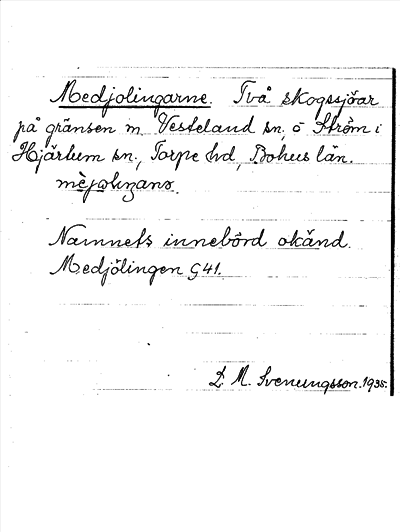 Medjolingarne. Två skogssjöar
på gränsen m. Vesteland sn, o Ström i
Hjärtum sn, Torpe hd, Bohus län.
Namnets innebörd okänd.
Medjölingen G 41.
D. M. Svenungsson. 1935.